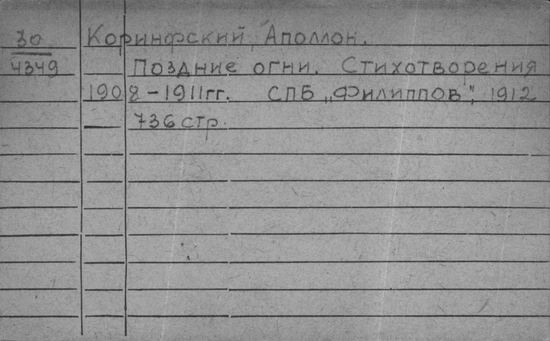 30 Коринфский Аполлон.
4349 Поздние огни. Стихотворения
1908-1911гг. СПБ „Филиппов", 1912
736 стр.